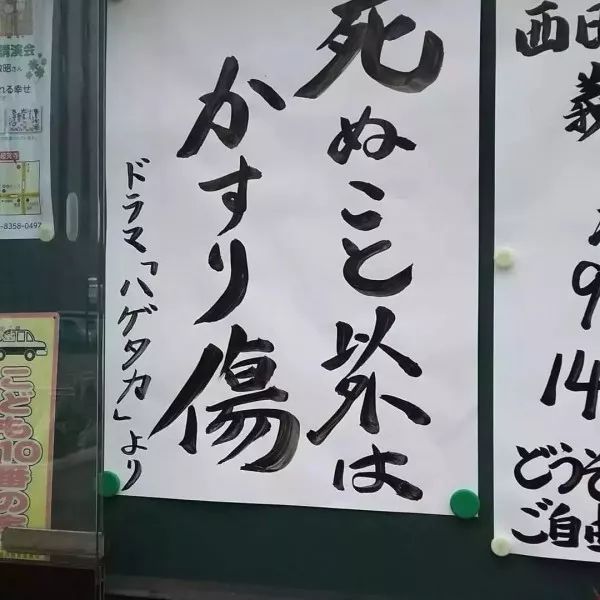 死ぬこと以外は
かすり傷
ドラマ「ハゲタカ」より
西田
義
9
14
どうぞ
ご自由
講演会
昭さん
れる幸せ
-8358-0497
こども
110番の家